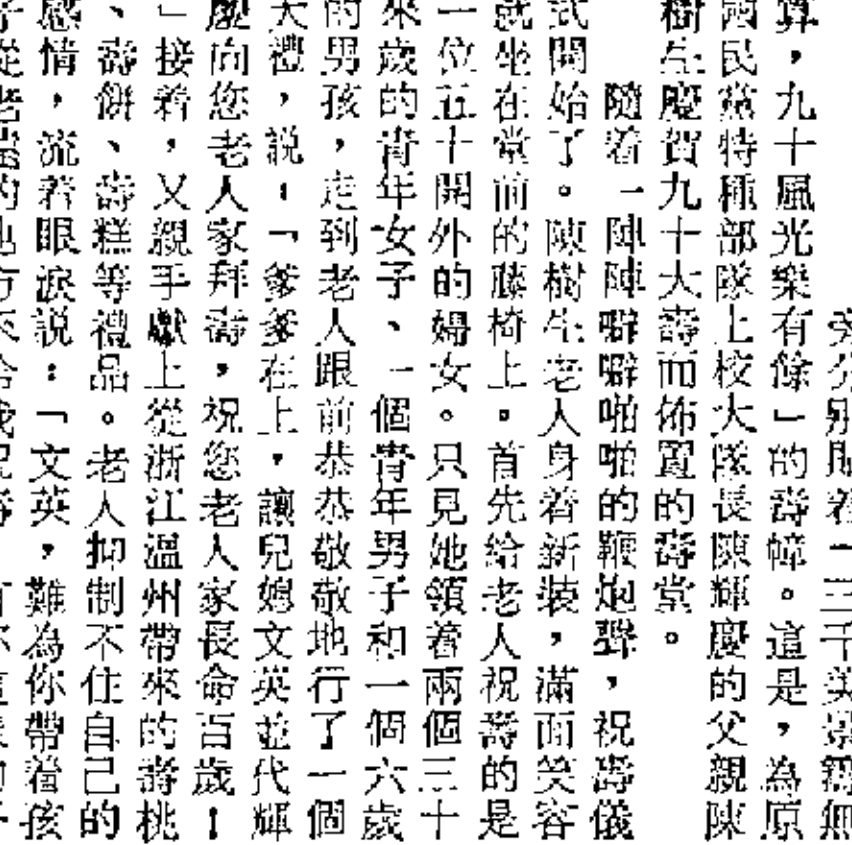 旁分別貼着「三千美景無
算，九十風光樂有餘」的壽幛。這是，為原
國民黨特種部隊上校大隊長陳輝慶的父親陳
樹生慶賀九十大壽而佈置的壽堂。
隨着一陣陣噼噼啪啪的鞭炮聲，祝壽儀
式開始了。陳樹生老人身着新裝，滿面笑容
就坐在堂前的藤椅上。首先給老人祝壽的是
一位五十開外的婦女。只見她領着兩個三十
來歲的青年女子、一個青年男子和一個六歲
的男孩，走到老人跟前恭恭敬敬地行了一個
大禮，説：「爹爹在上，讓兒媳文英並代輝
慶向您老人家拜壽，祝您老人家長命百歲！
」接着，又親手獻上從浙江溫州帶來的壽桃
、壽餅、壽糕等禮品。老人抑制不住自己的
感情，流着眼淚説：「文英，難為你帶着孩
子從老遠的地方來給我祝壽